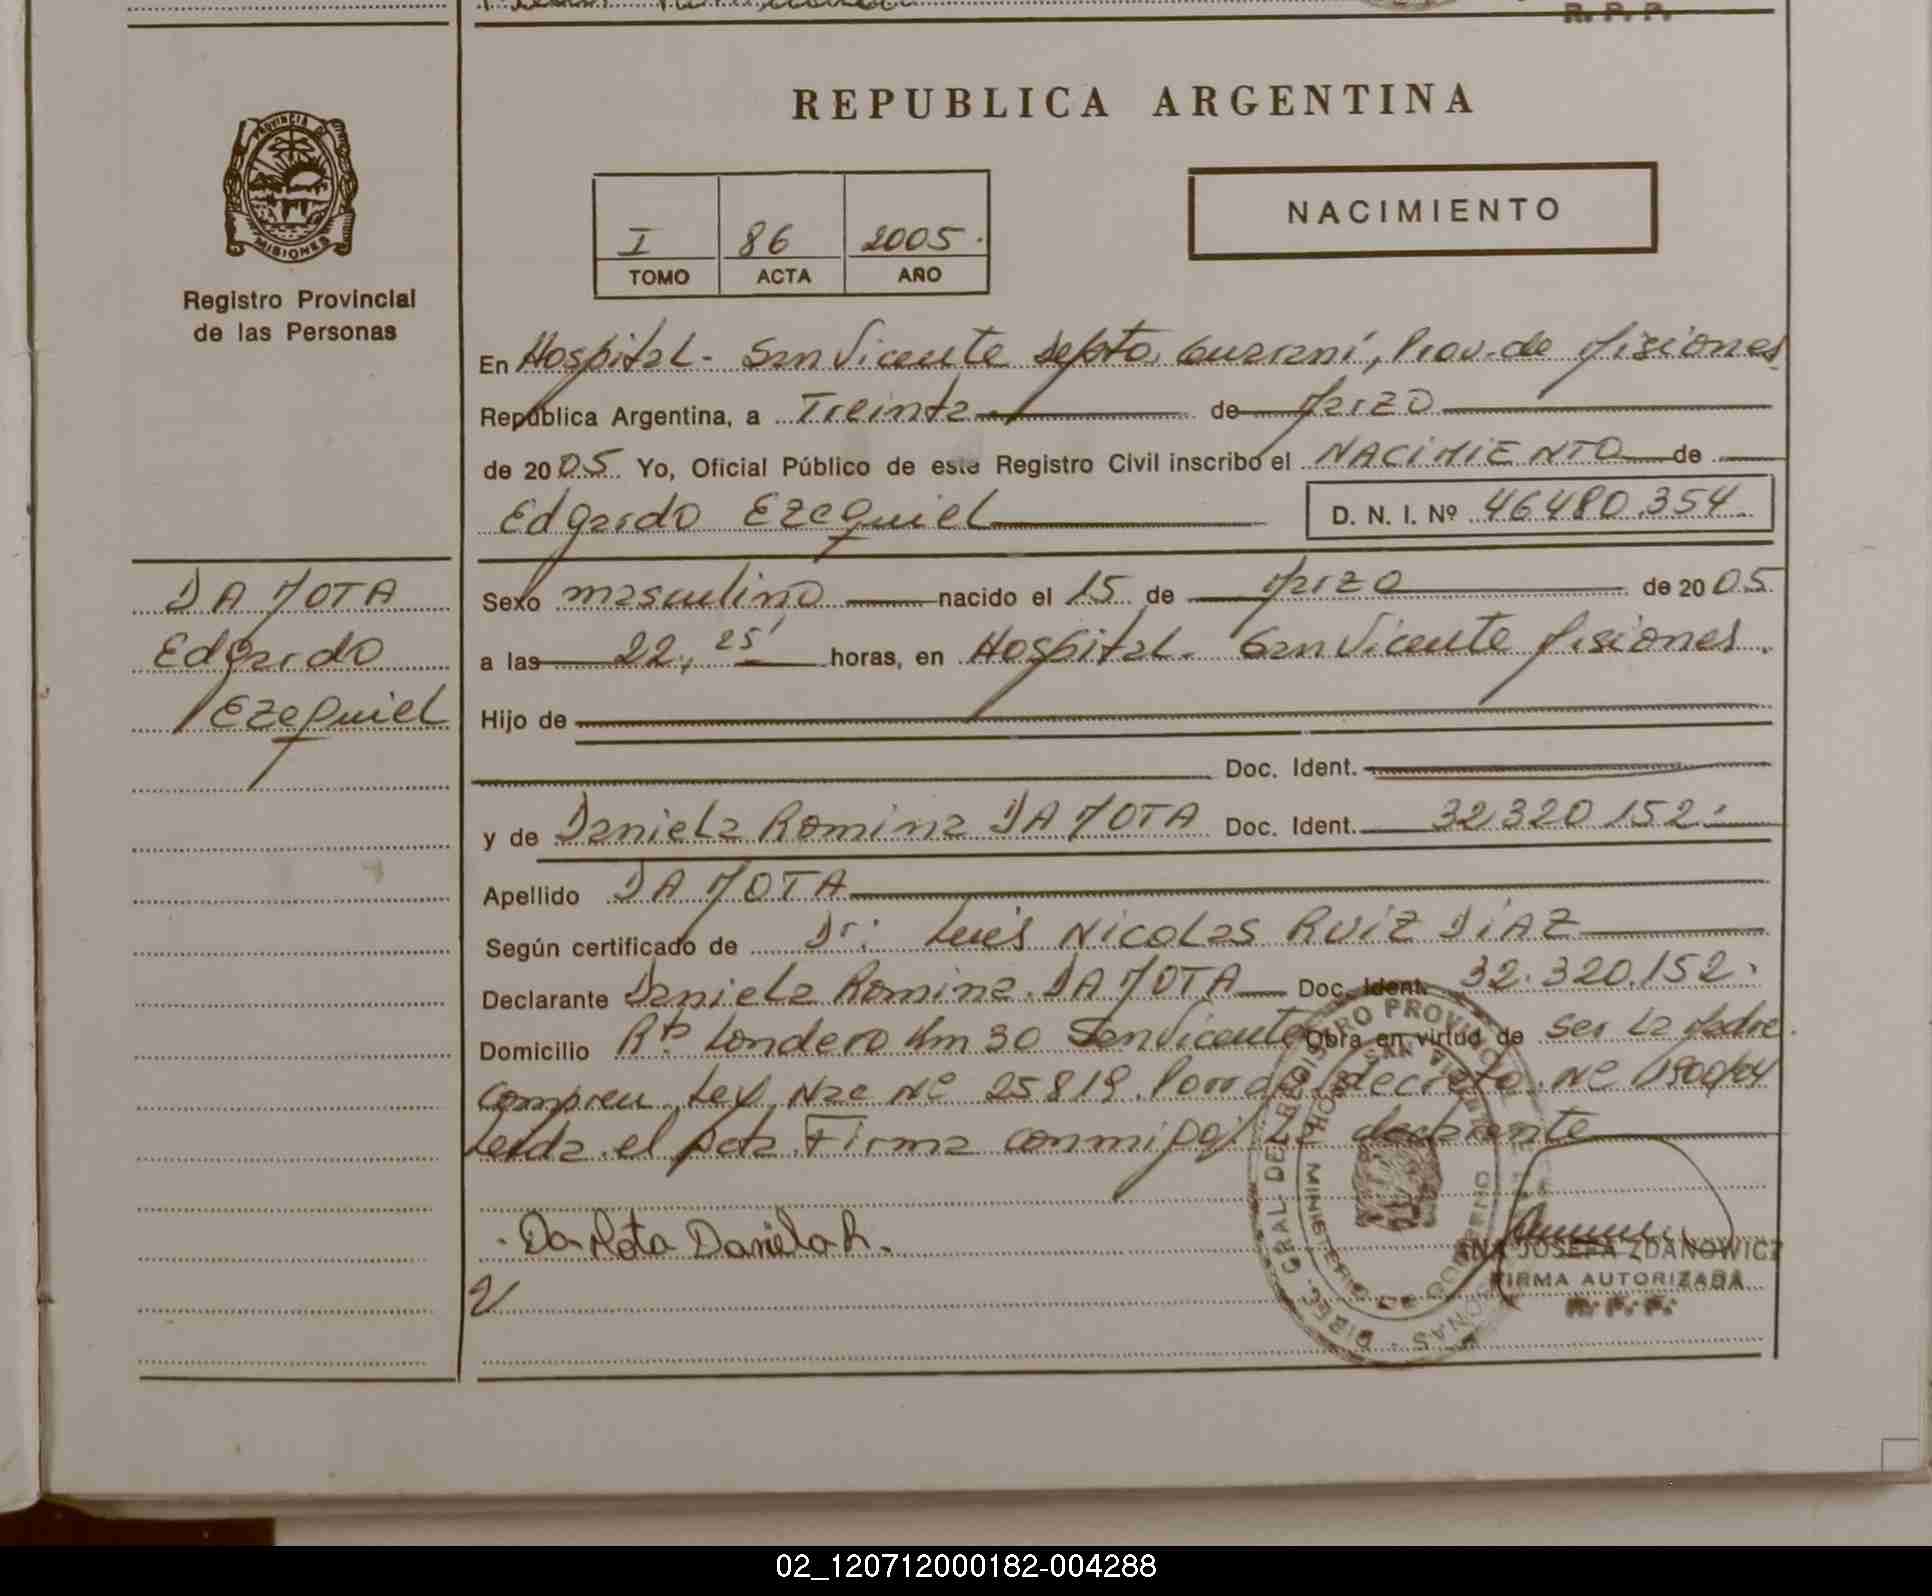 R. P. P.
PROVINCIA DE
MISIONES
Registro Provincial
de las Personas
REPUBLICA ARGENTINA
I 86 2005.
TOMO ACTA AÑO
NACIMIENTO
En Hospital - San Vicente Depto. Guaraní, Prov. de Misiones
República Argentina, a Treinta de Marzo
de 2005 Yo, Oficial Público de este Registro Civil inscribo el NACIMIENTO de
Edgardo Ezequiel D. N. I. Nº 46480.354
DA MOTA
Edgardo
Ezequiel
Sexo masculino nacido el 15 de Marzo de 2005
a las 22, 25' horas, en Hospital. San Vicente Misiones.
Hijo de
Doc. Ident.
y de Daniela Romina DA MOTA Doc. Ident. 32320152.
Apellido DA MOTA
Según certificado de Dr: Luis Nicolas RUIZ DíAZ
Declarante Daniela Romina DA MOTA Doc. Ident. 32.320.152.
Domicilio Londero Km 30 San Vicente Obra en virtud de ser la Madre.
Ley Nac Nº 25819 decreto Nº
Leida el Acta Firma conmigo la declarante
Da Mota Daniela R.
DIREC. GRAL DEL REGISTRO PROVINCIAL PERSONAS
MINISTERIO DE GOBIERNO
ANA JOSEFA ZDANOWICZ
FIRMA AUTORIZADA
R. P. P.
02_120712000182-004288